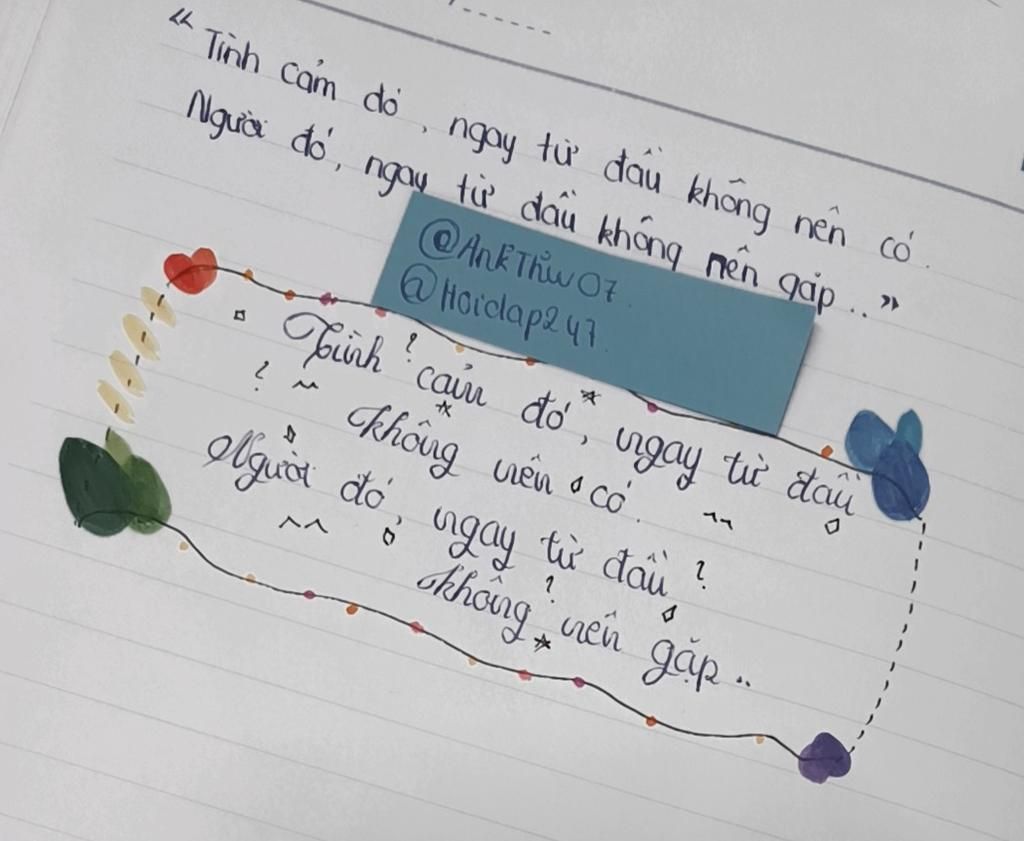 “Tình cảm đó, ngay từ đầu không nên có.
Người đó, ngay từ đầu không nên gặp..”
@AnhThw07
@Hoidap247
Tình cảm đó, ngay từ đầu
không nên có.
Người đó, ngay từ đầu
không nên gặp..